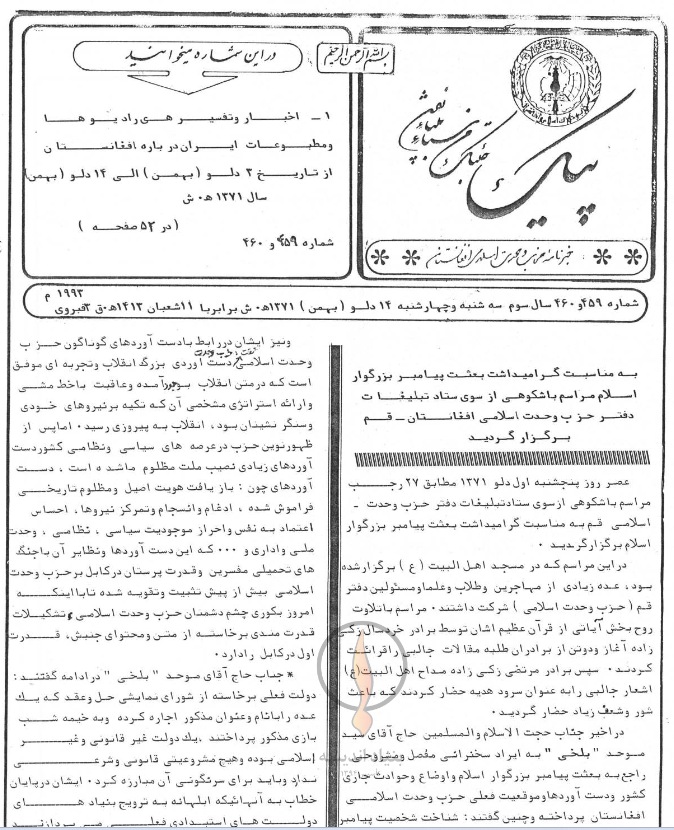 بسم الله الرحمن الرحیم
پیک
خبرنامه حزب وحدت اسلامی افغانستان
در این شماره میخوانید
۱ـ اخبار وتفسیر های رادیو ها
ومطبوعات ایران در باره افغانستان
از تاریخ ۳ دلو ( بهمن ) الی ۱۴ دلو ( بهمن )
سال ۱۳۷۱ ه۰ ش
( در ۵۲ صفحه )
شماره ۴۵۹ و ۴۶۰
شماره ۴۵۹و ۴۶۰ سال سوم سه شنبه وچهارشنبه ۱۴ دلو ( بهمن ) ۱۳۷۱ه۰ش برابر با ۱۱شعبان ۱۴۱۳ه۰ق ۳فبروی ۱۹۹۳ م
به مناسبت گرامیداشت بعثت پیامبر بزرگوار
اسلام مراسم باشکوهی از سوی ستاد تبلیغات
دفتر حزب وحدت اسلامی افغانستان ـ قم
برگزار گردید
عصر روز پنجشنبه اول دلو ۱۳۷۱ مطابق ۲۷ رجب
مراسم باشکوهی ازسوی ستادتبلیغات دفتر حزب وحدت ـ
اسلامی قم به مناسبت گرامیداشت بعثت پیامبر بزرگوار
اسلام برگزارگردید ۰
دراین مراسم که در مسجد اهل البیت ( ع ) برگزار شده
بود، عده زیادی از مهاجرین وطلاب وعلماومسئولین دفتر
قم ( حزب وحدت اسلامی ) شرکت داشتند۰ مراسم باتلاوت
روح بخش آیاتی از قرآن عظیم اشان توسط برادر خردسال زکی
زاده آغاز ودوتن از برادران طلبه مقالات جالبی راقرائت
کردند۰ سپس برادر مرتضی زکی زاده مداح اهل البیت(ع)
اشعار جالبی رابه عنوان سرود هدیه حضار کردند که باعث
شور وشعف زیاد حضار گردید۰
دراخیر جناب حجت الاسلام والمسلمین حاج آقای سید
موحد " بلخی " به ایراد سخنرانی مفصل ومشروحی
راجع به بعثت پیامبر بزرگوار اسلام واوضاع وحوادث جاری
کشور ودست آوردهاوموقعیت فعلی حزب وحدت اسلامی
افغانستان پرداخته وچنین گفتند: شناخت شخصیت پیامبر
ونیز ایشان دررابط بادست آوردهای گوناگون حزب
وحدت اسلامی گفت: حزب وحدت دست آوردی بزرگ انقلاب وتجربه ای موفق
است که درمتن انقلاب بوجود آمده وعاقبت باخط مشی
وارائه استراتژی مشخصی آن که تکیه برنیروهای خودی
وسنگر نشینان بود، انقلاب به پیروزی رسید۰ اماپس از
ظهورنوین حزب درعرصه های سیاسی ونظامی کشوردست
آوردهای زیادی نصیب ملت مظلوم ماشده است ، دست
آوردهای چون : باز یافت هویت اصیل ومظلوم تاریخی
فراموش شده ، ادغام وانسجام وتمرکز نیروها، احساس
اعتماد به نفس واحراز موجودیت سیاسی ، نظامی ، وحدت
ملی واداری و ۰۰۰ که این دست آوردها ونظایر آن باجنگ
های تحمیلی مفسرین وقدرت پرستان درکابل برحزب وحدت
اسلامی بیش از پیش تثبیت وتقویه شده تابااینکه
امروز بکوری چشم دشمنان حزب وحدت اسلامی تشکیلات
قدرت مندی برخاسته از متن ومحتوای جنبش، قدرت
اول درکابل رادارد۰
* جناب حاج آقای موحد " بلخی " درادامه گفتند:
دولت فعلی برخاسته از شورای نمایشی حل وعقد که یک
عده رابانام وعنوان مذکور اجاره کرده وبه خیمه شب
بازی مذکور پرداختند ،یک دولت غیر قانونی وغیر
اسلامی بوده وهیچ مشروعیتی قانونی وشرعی
ندارد وباید برای سرنگونی آن مبارزه کرد۰ ایشان درپایان
خطاب به آنهائیکه ابلهانه به ترویج بنیاد های
دولت های استبدادی فعلی می پردازند
بنیاد اندیشه